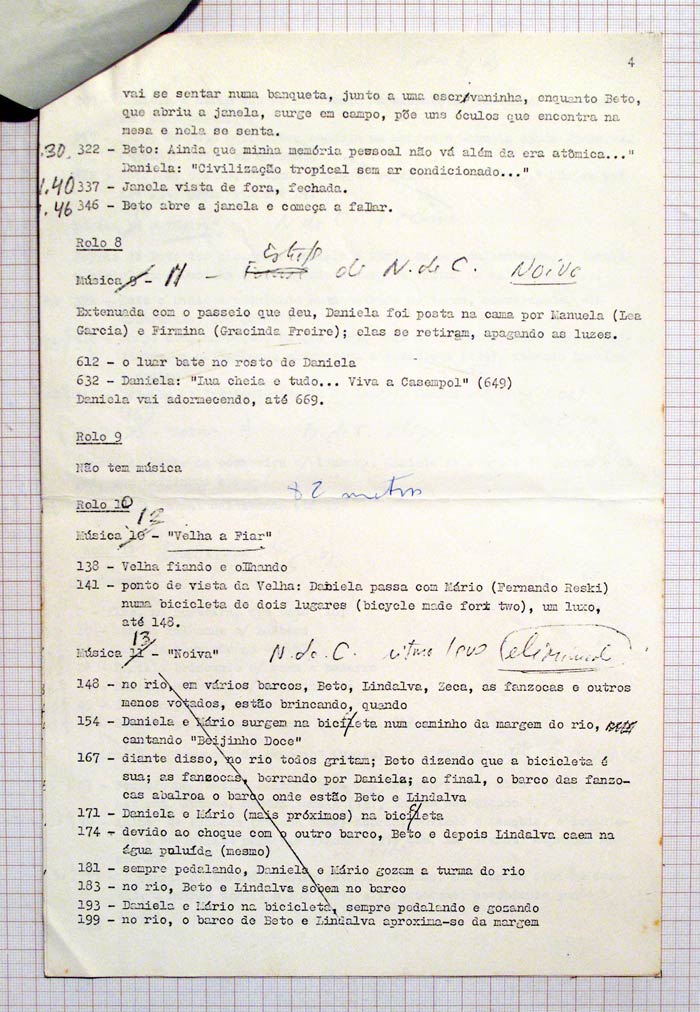 4
vai se sentar numa banqueta, junto a uma escrivaninha, enquanto Beto,
que abriu a janela, surge em campo, põe uns óculos que encontra na
mesa e nela se senta.
1.30 322 - Beto: Ainda que minha memória pessoal não vá além da era atômica..."
Daniela: "Civilização tropical sem ar condicionado..."
1.40 337 - Janela vista de fora, fechada.
1.46 346 - Beto abre a janela e começa a fallar.
Rolo 8
Música 11 - de N. de C. Noiva
Extenuada com o passeio que deu, Daniela foi posta na cama por Manuela (Lea
Garcia) e Firmina (Gracinda Freire); elas se retiram, apagando as luzes.
612 - o luar bate no rosto de Daniela
632 - Daniela: "Lua cheia e tudo... Viva a Casempol" (649)
Daniela vai adormecendo, até 669.
Rolo 9
Não tem música
82 metros
Rolo 10
Música 10 12 - "Velha a Fiar"
138 - Velha fiando e olhando
141 - ponto de vista da Velha: Daniela passa com Mário (Fernando Reski)
numa bicicleta de dois lugares (bicycle made for two), um luxo,
até 148.
Música 11 13 - "Noiva" N. de C. ritmo
148 - no rio, em vários barcos, Beto, Lindalva, Zeca, as fanzocas e outros
menos votados, estão brincando, quando
154 - Daniela e Mário surgem na bicileta num caminho da margem do rio,
cantando "Beijinho Doce"
167 - diante disso, no rio todos gritam; Beto dizendo que a bicicleta é
sua; as fanzocas, berrando por Daniela; ao final, o barco das fanzo-
cas abalroa o barco onde estão Beto e Lindalva
171 - Daniela e Mário (mais próximos) na bicileta
174 - devido ao choque com o outro barco, Beto e depois Lindalva caem na
água puluída (mesmo)
181 - sempre pedalando, Daniela e Mário gozam a turma do rio
183 - no rio, Beto e Lindalva sobem no barco
193 - Daniela e Mário na bicicleta, sempre pedalando e gozando
199 - no rio, o barco de Beto e Lindalva aproxima-se da margem